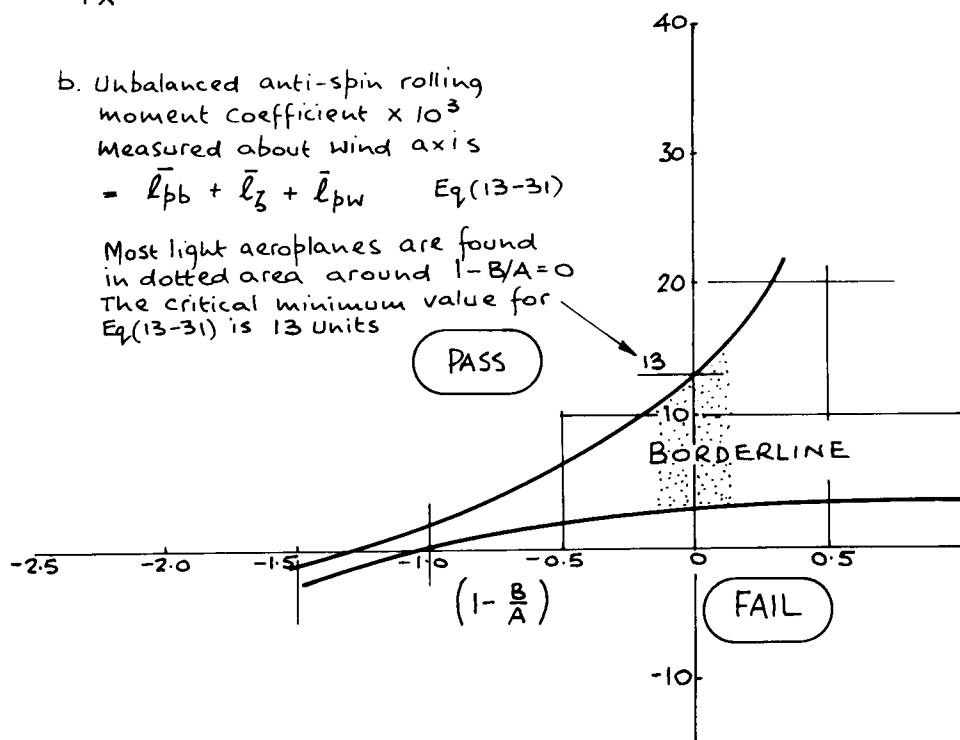 40
b. Unbalanced anti-spin rolling
moment coefficient × 10³
measured about wind axis
= l̄pb + l̄ζ + l̄pw Eq(13-31)
30
Most light aeroplanes are found
in dotted area around 1-B/A=0
The critical minimum value for
Eq(13-31) is 13 units
20
PASS
13
10
BORDERLINE
-2.5 -2.0 -1.5 -1.0 -0.5 0 0.5
(1- B/A)
FAIL
-10